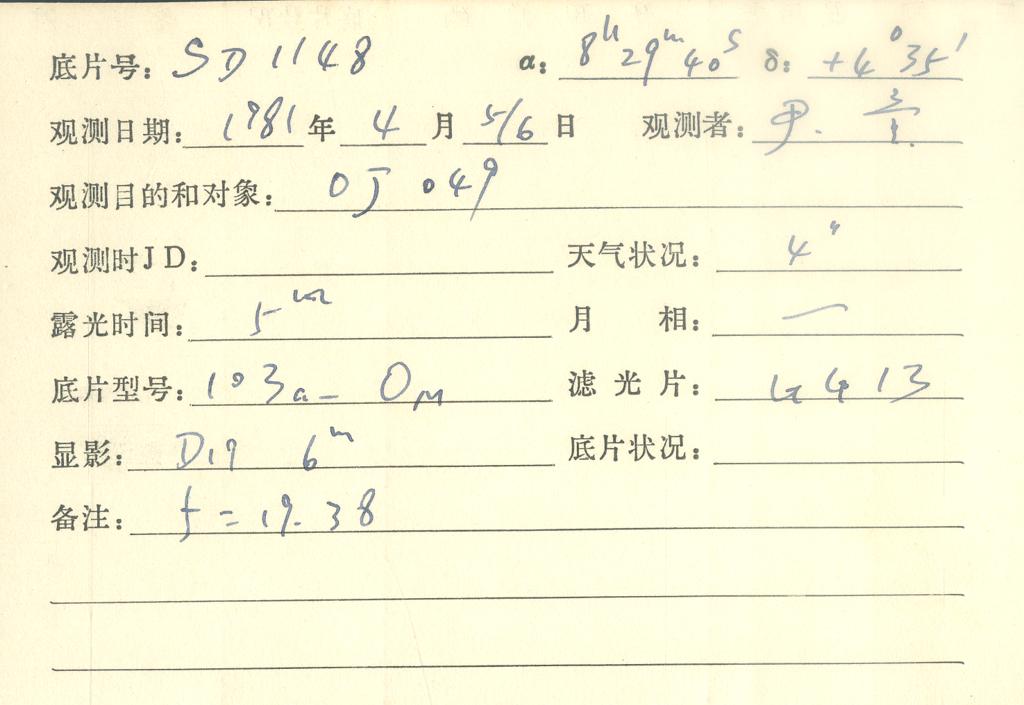 底片号: SD1148 α: 8h29m40s δ: +4°35′
观测日期: 1981年 4月 5/6日 观测者:
观测目的和对象: OJ 049
观测时JD: 天气状况: 4″
露光时间: 5m 月 相: 一
底片型号: 103a-O 滤光片: GG13
显影: D19 6m 底片状况:
备注: f=19.38